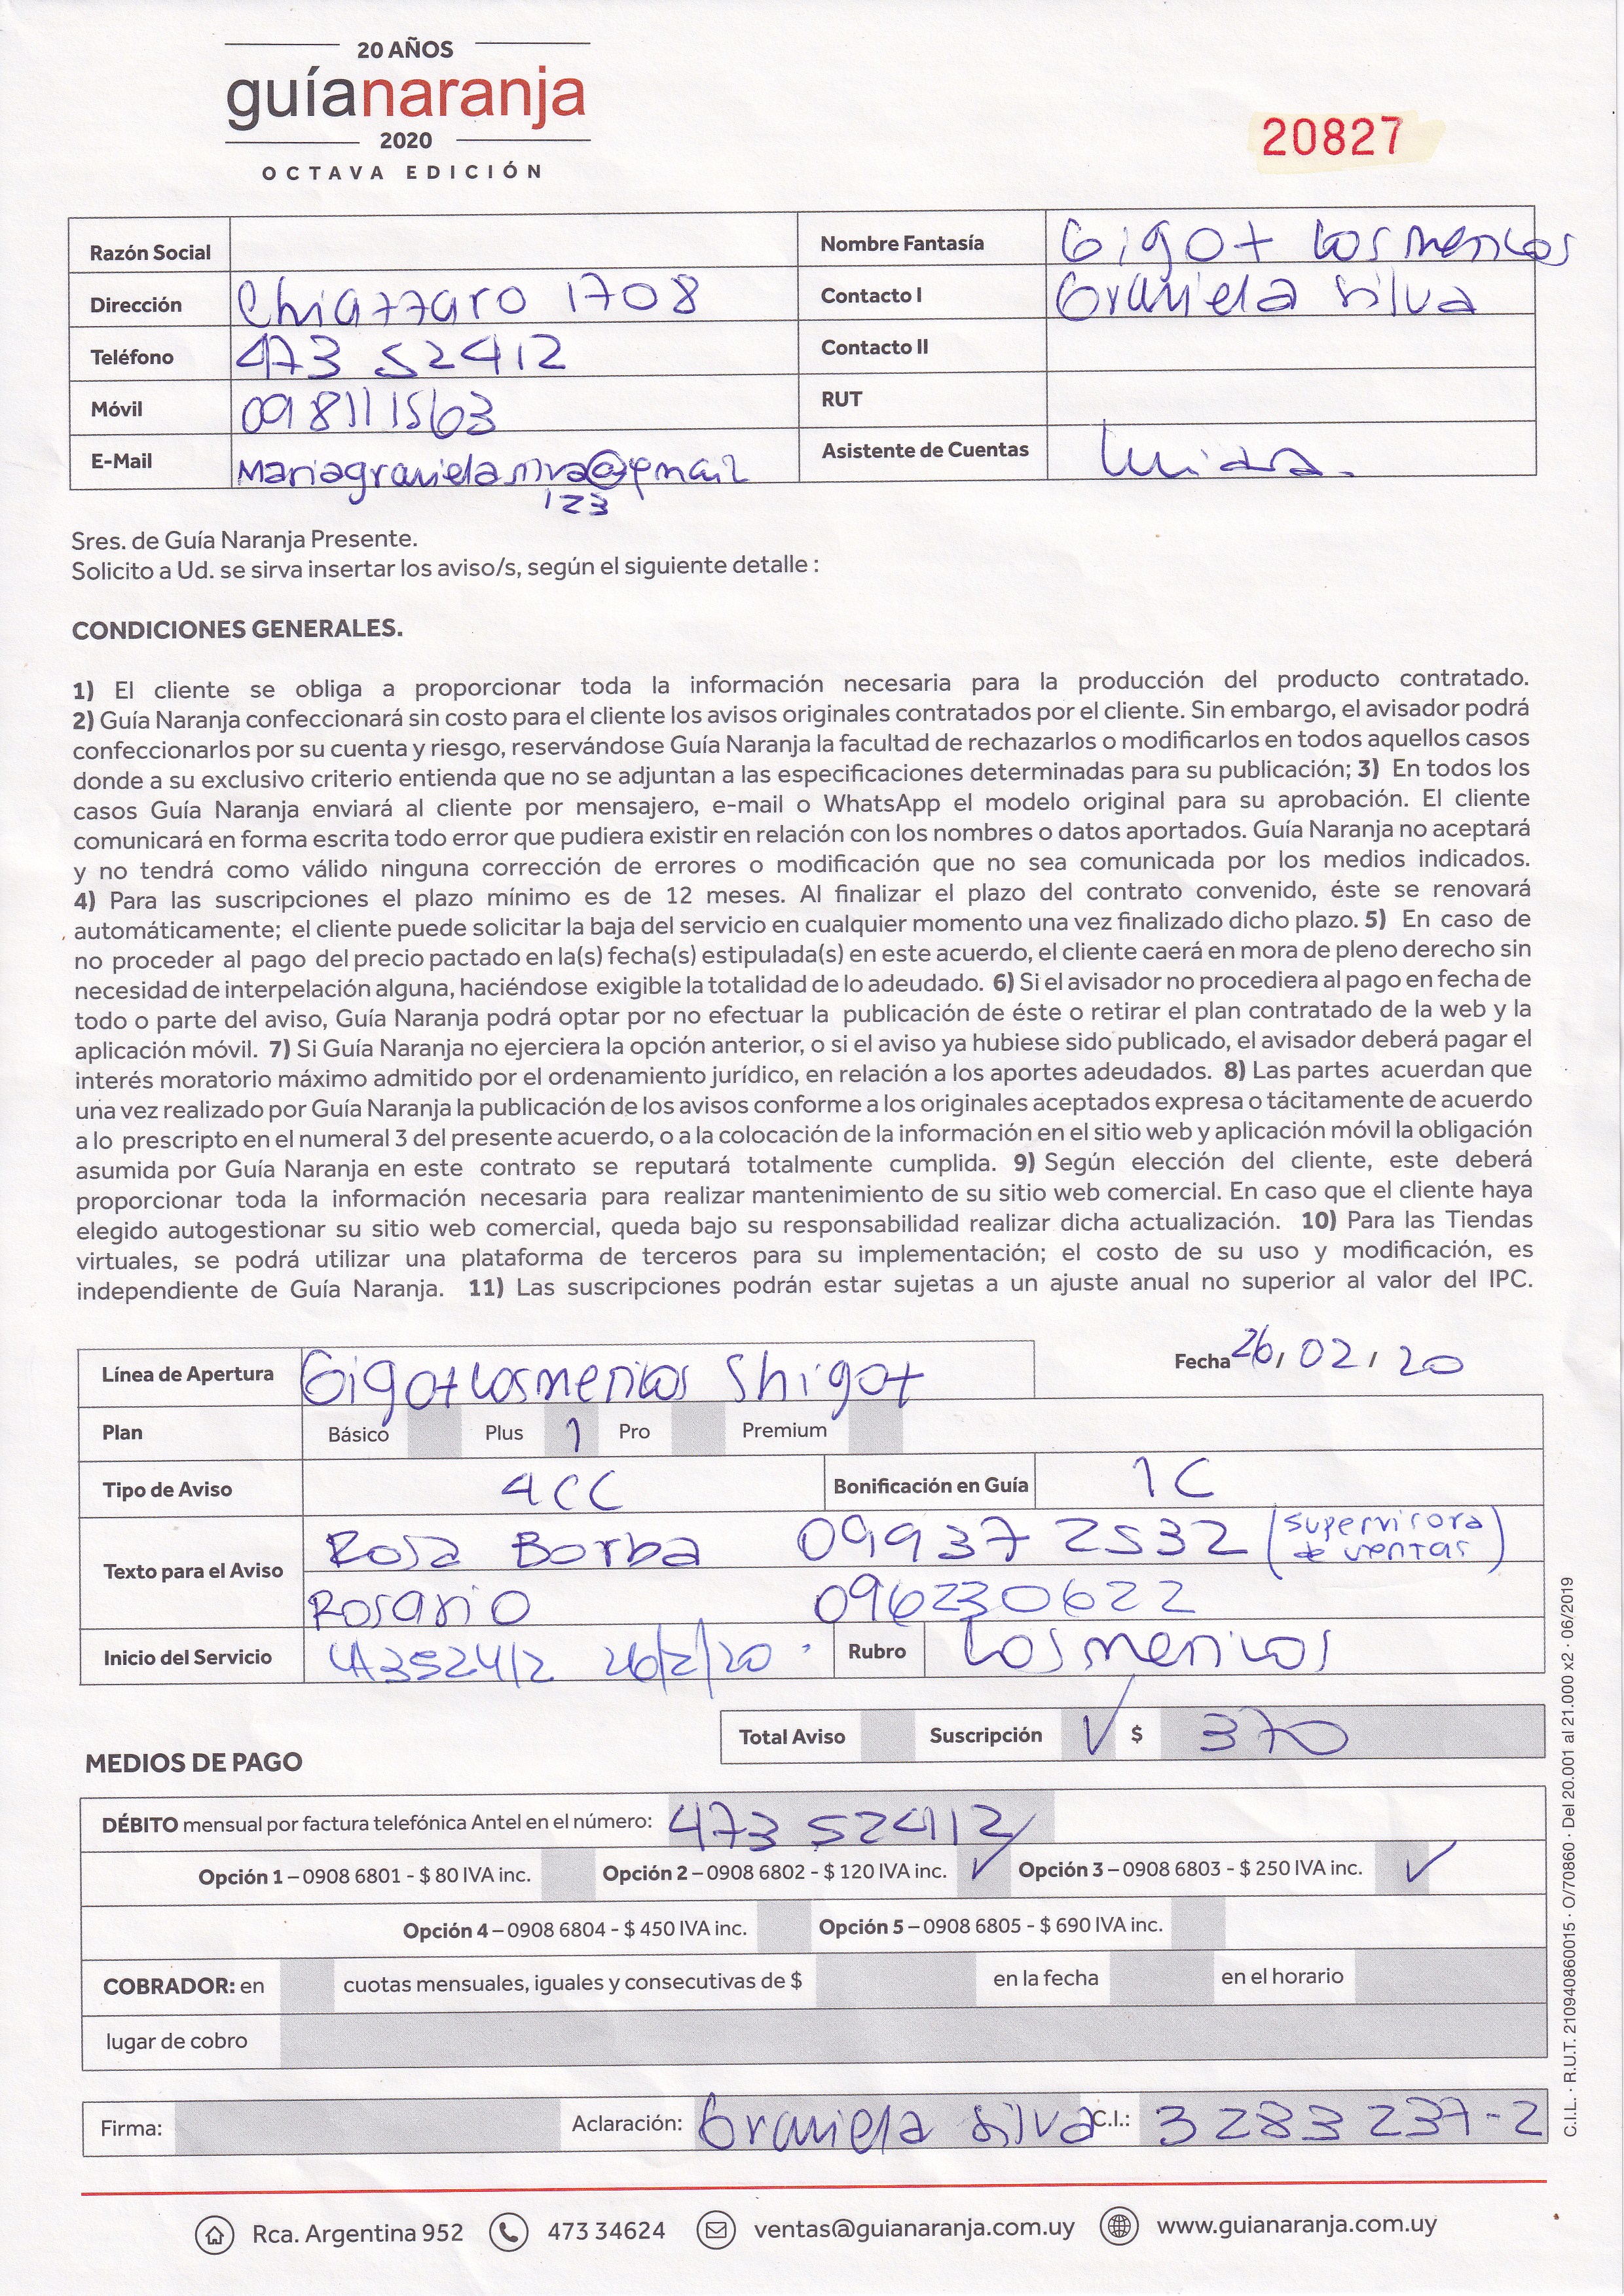 20 AÑOS
guíanaranja
2020
OCTAVA EDICIÓN
20827
Razón Social Nombre Fantasía Gigot Cosmeticos
Dirección Chiazzaro 1708 Contacto I Graciela Silva
Teléfono 473 52412 Contacto II
Móvil 098111563 RUT
E-Mail Mariagracielasilva@gmail Asistente de Cuentas
123
Sres. de Guía Naranja Presente.
Solicito a Ud. se sirva insertar los aviso/s, según el siguiente detalle :
CONDICIONES GENERALES.
1) El cliente se obliga a proporcionar toda la información necesaria para la producción del producto contratado.
2) Guía Naranja confeccionará sin costo para el cliente los avisos originales contratados por el cliente. Sin embargo, el avisador podrá
confeccionarlos por su cuenta y riesgo, reservándose Guía Naranja la facultad de rechazarlos o modificarlos en todos aquellos casos
donde a su exclusivo criterio entienda que no se adjuntan a las especificaciones determinadas para su publicación; 3) En todos los
casos Guía Naranja enviará al cliente por mensajero, e-mail o WhatsApp el modelo original para su aprobación. El cliente
comunicará en forma escrita todo error que pudiera existir en relación con los nombres o datos aportados. Guía Naranja no aceptará
y no tendrá como válido ninguna corrección de errores o modificación que no sea comunicada por los medios indicados.
4) Para las suscripciones el plazo mínimo es de 12 meses. Al finalizar el plazo del contrato convenido, éste se renovará
automáticamente; el cliente puede solicitar la baja del servicio en cualquier momento una vez finalizado dicho plazo. 5) En caso de
no proceder al pago del precio pactado en la(s) fecha(s) estipulada(s) en este acuerdo, el cliente caerá en mora de pleno derecho sin
necesidad de interpelación alguna, haciéndose exigible la totalidad de lo adeudado. 6) Si el avisador no procediera al pago en fecha de
todo o parte del aviso, Guía Naranja podrá optar por no efectuar la publicación de éste o retirar el plan contratado de la web y la
aplicación móvil. 7) Si Guía Naranja no ejerciera la opción anterior, o si el aviso ya hubiese sido publicado, el avisador deberá pagar el
interés moratorio máximo admitido por el ordenamiento jurídico, en relación a los aportes adeudados. 8) Las partes acuerdan que
una vez realizado por Guía Naranja la publicación de los avisos conforme a los originales aceptados expresa o tácitamente de acuerdo
a lo prescripto en el numeral 3 del presente acuerdo, o a la colocación de la información en el sitio web y aplicación móvil la obligación
asumida por Guía Naranja en este contrato se reputará totalmente cumplida. 9) Según elección del cliente, este deberá
proporcionar toda la información necesaria para realizar mantenimiento de su sitio web comercial. En caso que el cliente haya
elegido autogestionar su sitio web comercial, queda bajo su responsabilidad realizar dicha actualización. 10) Para las Tiendas
virtuales, se podrá utilizar una plataforma de terceros para su implementación; el costo de su uso y modificación, es
independiente de Guía Naranja. 11) Las suscripciones podrán estar sujetas a un ajuste anual no superior al valor del IPC.
Línea de Apertura Gigot Cosmeticos Shigot Fecha 26/ 02 / 20
Plan Básico Plus 1 Pro Premium
Tipo de Aviso 4CC Bonificación en Guía 1C
Texto para el Aviso Rosa Borba 099372532 (supervisora de ventas)
Rosario 096230622
Inicio del Servicio 47352412 26/2/20 Rubro Cosmeticos
Total Aviso Suscripción ✓ $ 370
MEDIOS DE PAGO
DÉBITO mensual por factura telefónica Antel en el número: 473 52412
Opción 1 – 0908 6801 - $ 80 IVA inc. Opción 2 – 0908 6802 - $ 120 IVA inc. ✓ Opción 3 – 0908 6803 - $ 250 IVA inc. ✓
Opción 4 – 0908 6804 - $ 450 IVA inc. Opción 5 – 0908 6805 - $ 690 IVA inc.
COBRADOR: en cuotas mensuales, iguales y consecutivas de $ en la fecha en el horario
lugar de cobro
Firma: Aclaración: Graciela Silva C.I.: 3283237-2
Rca. Argentina 952 473 34624 ventas@guianaranja.com.uy www.guianaranja.com.uy
C.I.L. · R.U.T. 210940860015 · O/70860 · Del 20.001 al 21.000 x2 · 06/2019